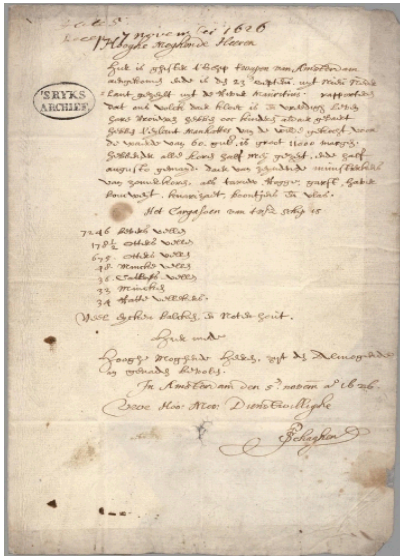 7 november 1626
Hooghe Moghende Heeren
Hier is ghister t'schip t'wapen van Amsterdam
aengekomen ende is den 23 septem. uyt Nieu Neder
lant gezeylt uyt de Rivier Mauritius. rapporteert
dat ons volck daer kloeck is en vreedigh leven
hare Vrouwen hebben ooc kinders aldaer gebaert
hebben t'eylant Manhattes van de wilde gekocht voor
de waerde van 60. guld. is groot 11000 morgen.
hebbende alle koren half mey gezeyt, ende half
augusto gemayd. daer van zeyndende munsterkens
van zomerkoren, als tarwe Rogge, garst, haver
boucweyt, knarizaet, boontjens en vlas.
Het Cargasoen van tsz schip is
'S RYKS
ARCHIEF
7246 bevers vellen
178½ otters vellen
675 otters vellen
48 Mincke vellen
36 Catloes vellen
33 Mincken
34 Ratte vellekens.
Veel eycken balcken, en Noten hout.
Hier mede
Hooghe Moghende Heeren, zyt den Almogende
in genade bevolen.
In Amsterdam den 5 novem ao 1626.
Uwe Hoo: Moo: Dienstwillighe
P Schaghen